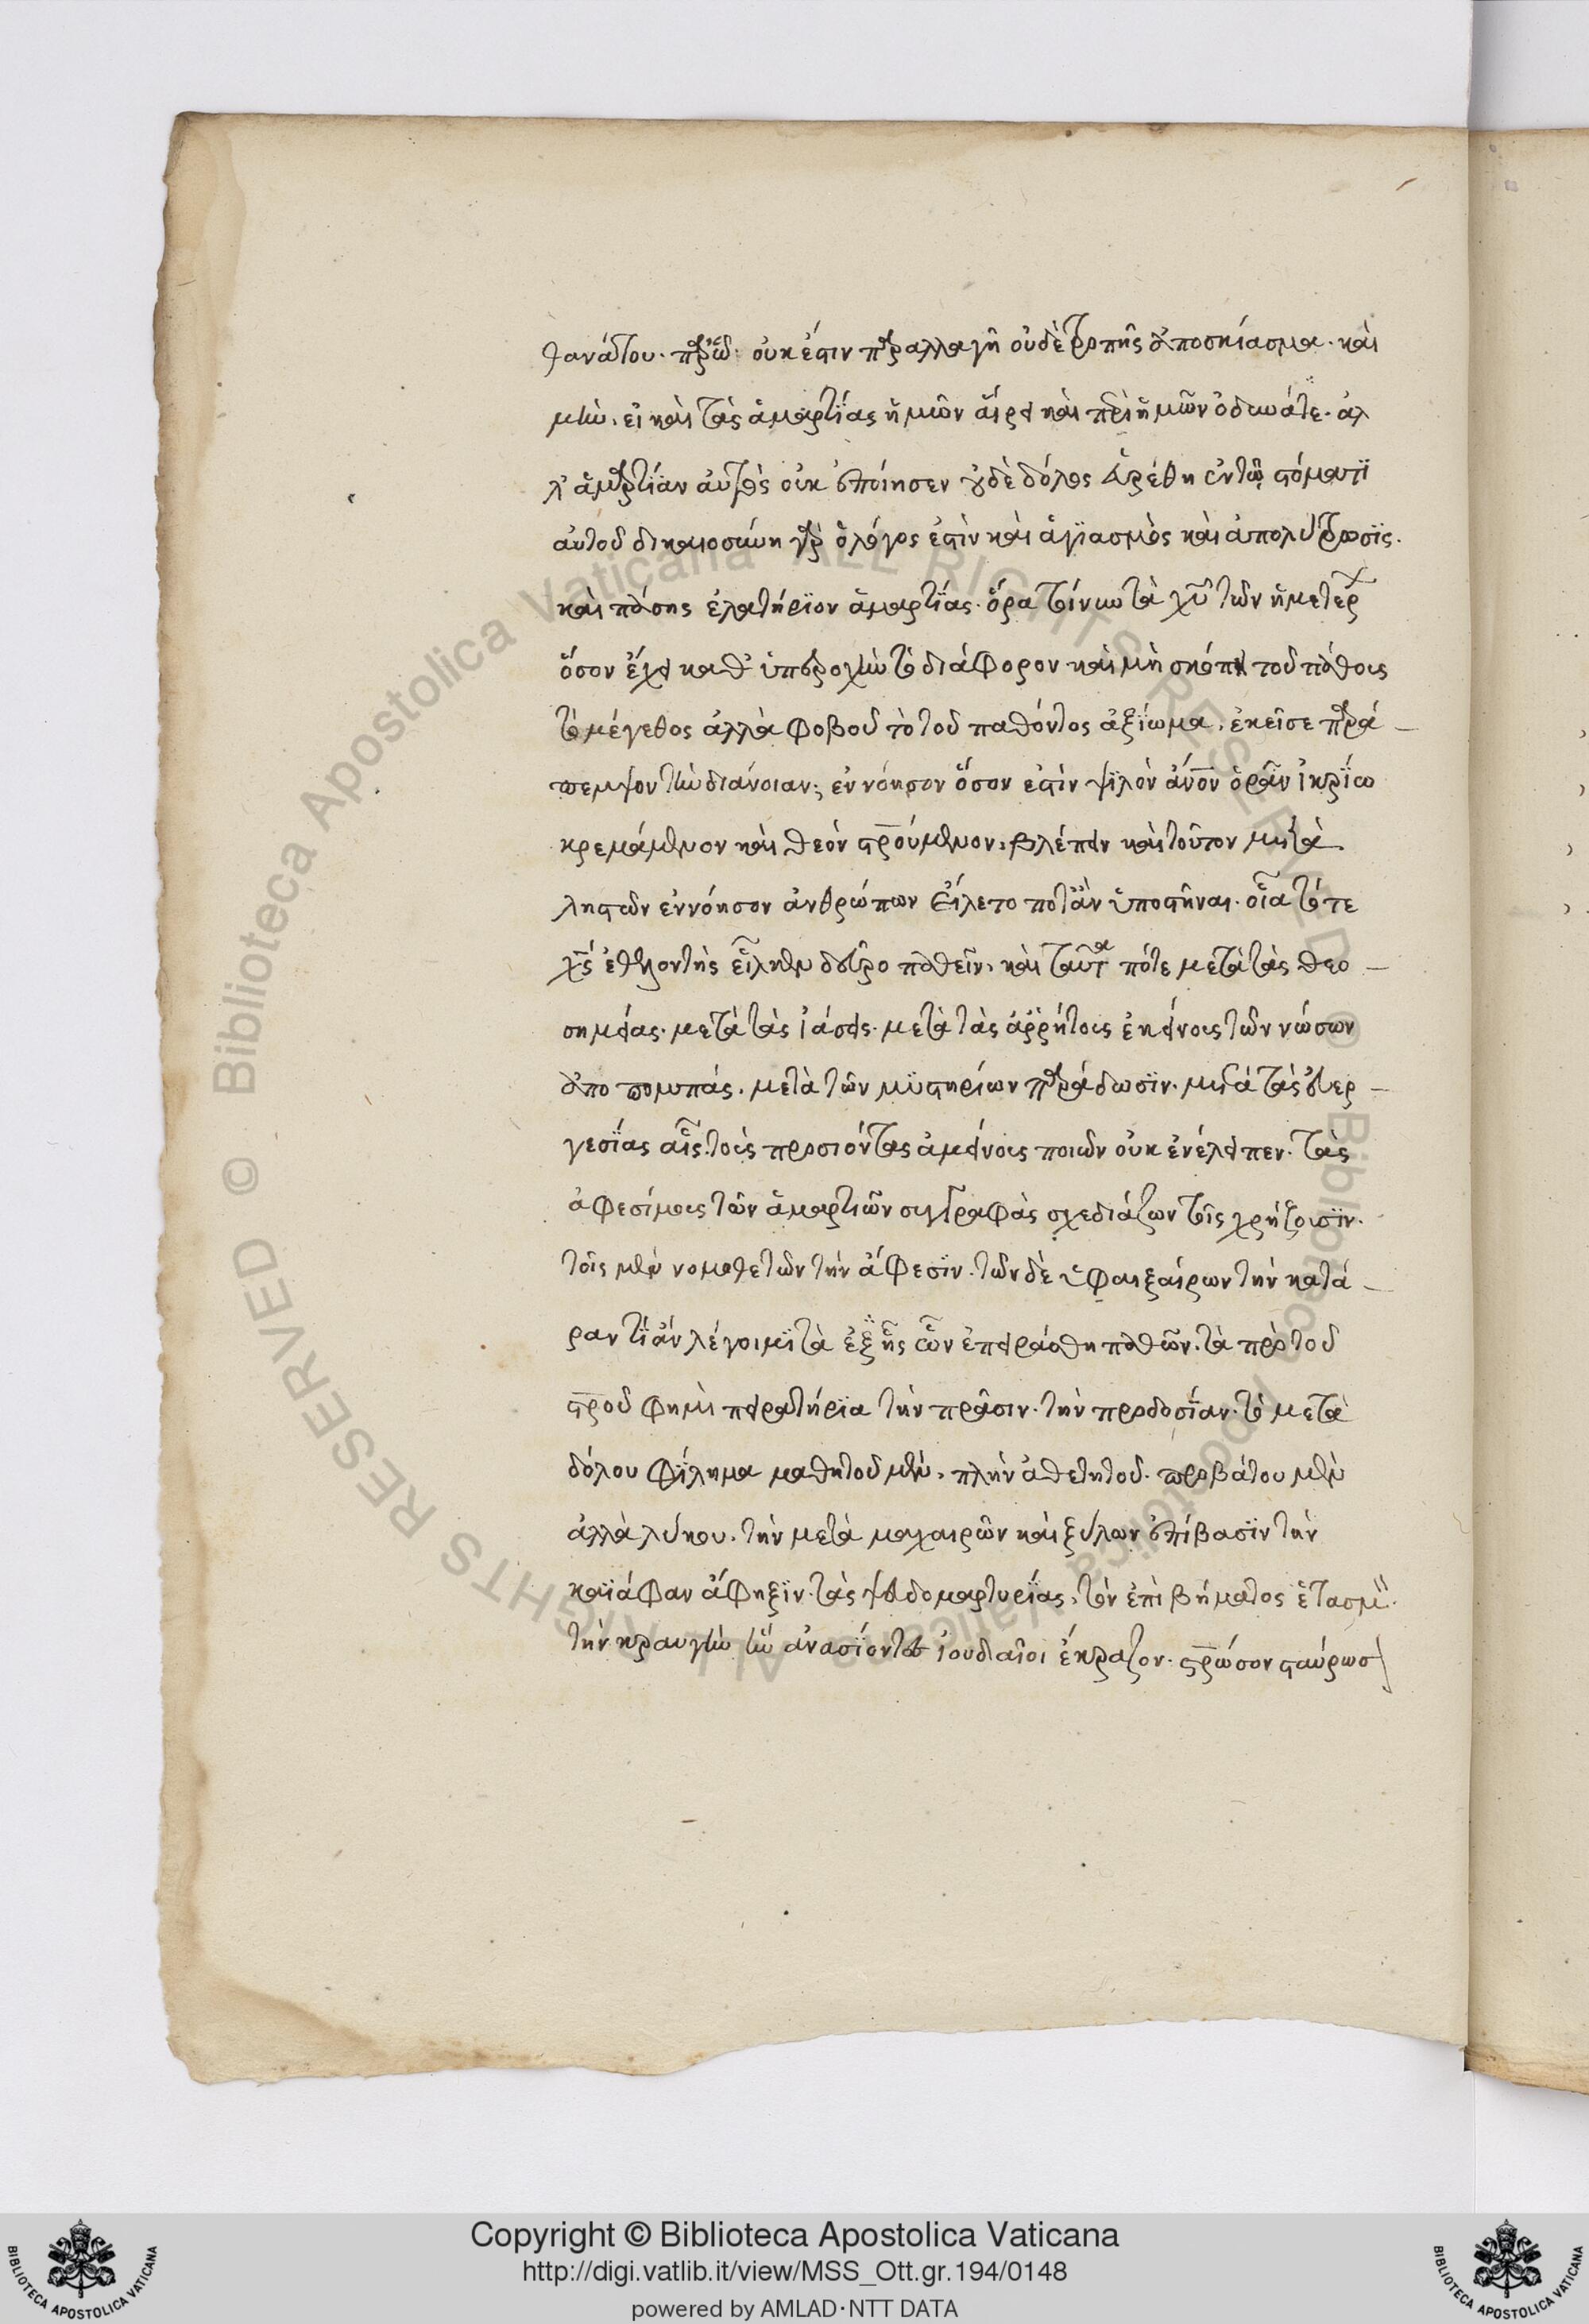 θανάτου. παρ' ὧ: οὐκ ἔστιν παραλλαγὴ οὐδὲ τροπῆς ἀποσκίασμα. καὶ
μὴν. εἰ καὶ τὰς ἁμαρτίας ἡμῶν αἴρει καὶ περὶ ἡμῶν ὀδυνᾶται. ἀλ
λ' ἁμαρτίαν αὐτὸς οὐκ ἐποίησεν οὐδὲ δόλος εὑρέθη ἐν τῷ στόματι
αὐτοῦ δικαιοσύνη γὰρ ὁ λόγος ἐστὶν καὶ ἁγιασμὸς καὶ ἀπολύτρωσις.
καὶ πάσης ἐλατήριον ἁμαρτίας. ὅρα τὰ χῦ τῶν ἡμετέρ
ὅσον ἔχει καθ' ὑπεροχὴν τὸ διάφορον καὶ μὴ σκόπει τοῦ πάθους
τὸ μέγεθος ἀλλὰ φοβοῦ τὸ τοῦ παθόντος ἀξίωμα. ἐκεῖσε παρά –
πεμψον τὴν διάνοιαν; ἐννόησον ὅσον ἐστὶν ψιλὸν ἄνον ὁρᾶν ἰκρίω
κρεμάμενον καὶ θεὸν στρούμενον. βλέπειν καὶ τοῦτον μετὰ
ληστῶν ἐννόησον ἀνθρώπων εἵλετο ποτ' ἂν ὑποστῆναι. οἷα τότε
χς ἐθελοντὴς εἷλκεν δεῦρο παθεῖν. καὶ ταῦτα πότε μετὰ τὰς θεο –
σημείας. μετὰ τὰς ἰάσεις. μετὰ τὰς ἀρρήτους ἐκείνους τῶν νόσων
ἀποπομπάς. μετὰ τῶν μυστηρίων παράδωσιν. μετὰ τὰς εὐερ –
γεσίας αἷς τοὺς προσιόντας ἀμείνους ποιῶν οὐκ ἐνέλειπεν. τὰς
ἀφεσίμους τῶν ἁμαρτιῶν συγγραφὰς σχεδιάζων τοῖς χρήζουσιν.
τοῖς μὲν νομοθετῶν τὴν ἄφεσιν. τῶν δὲ ὑφαιξαίρων τὴν κατά –
ραν τί ἂν λέγοιμι τὰ ἐξῆς ὧν ἐπειράσθη παθῶν. τὰ πρὸ τοῦ
στροῦ φημὶ πειρατήρια τὴν πρᾶσιν. τὴν προδοσίαν. τὸ μετὰ
δόλου φίλημα μαθητοῦ μὲν. πλὴν ἀθετητοῦ. προβάτου μὲν
ἀλλὰ λύκου. τὴν μετὰ μαχαιρῶν καὶ ξύλων ἐπίβασιν τὴν
καϊάφαν ἄφηξιν. τὰς ψευδομαρτυρίας. τὸν ἐπὶ βήματος ἐτασμ
τὴν κραυγὴν ἣν ἀνασείοντες ἰουδαῖοι ἔκραζον. στρώσον σταύρωσ